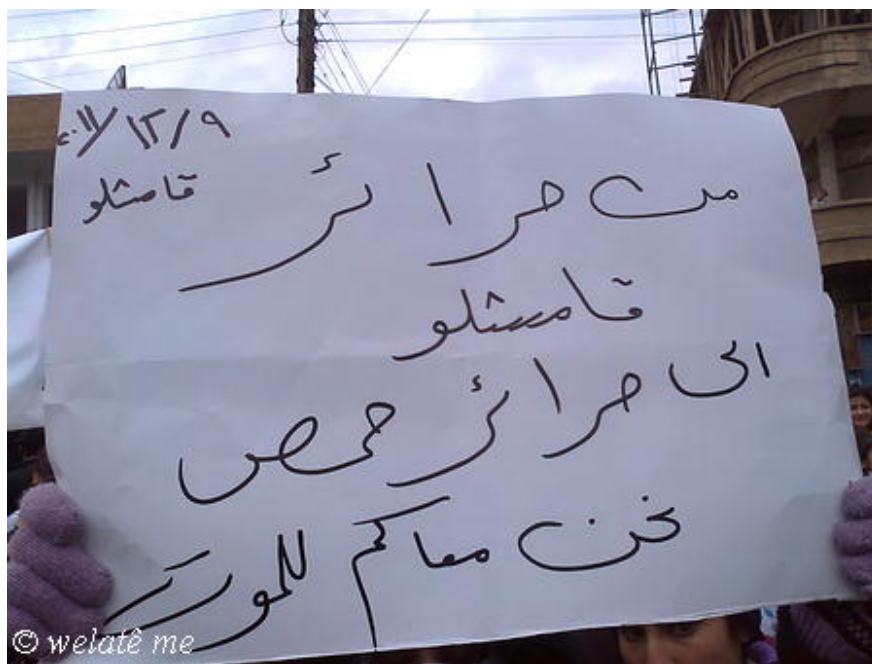 ٢٠١١/١٢/٩
قامشلو
من حرائر
قامشلو
الى حرائر حمص
نحن معاكم للموت
© welatê me